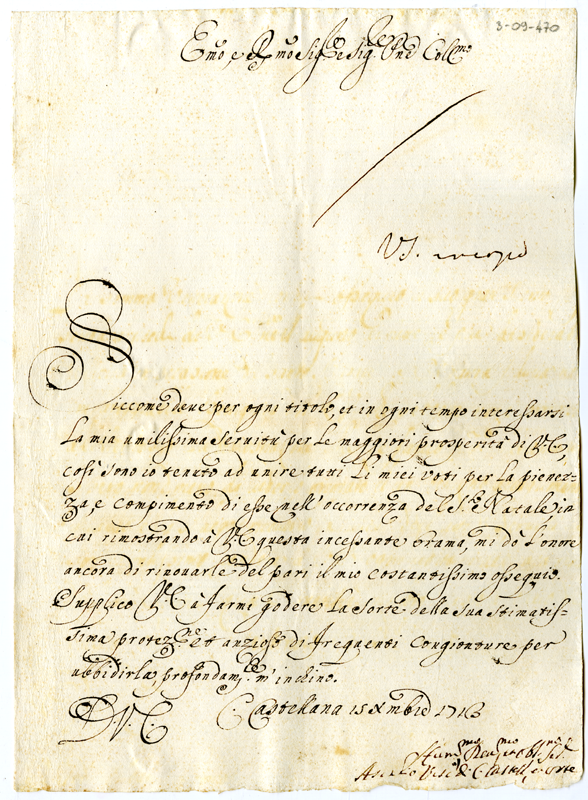 3-09-470
Emo, e Rmo Sig.re Sig.re Pne Colmo
Siccome deve per ogni titolo, et in ogni tempo interessarsi
la mia umilissima servitù per le maggiori prosperità di V.E.,
così sono io tenuto ad unire tutti li miei voti per la pienez-
za, e compimento di esse nell'occorrenza del S.to Natale, in
cui rimostrando à V.E. questa incessante brama, mi dò l'onore
ancora di rinovarle del pari il mio costantissimo ossequio.
Supplico V.E. à farmi godere la sorte della sua stimatis-
sima protez.ne et anzioso di frequenti congionture per
ubbidirla, profondam.te m'inchino.
D.V.E. C. Castellana 15 Xmbre 1716